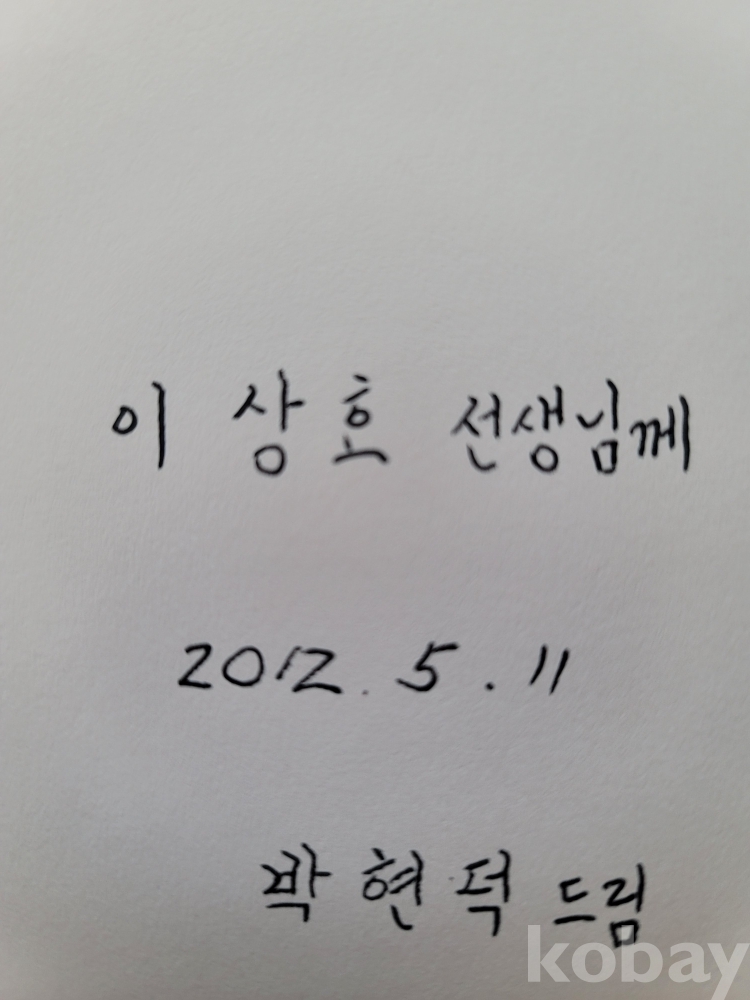 이 상호 선생님께
2012. 5. 11
박 현 덕 드림
kobay